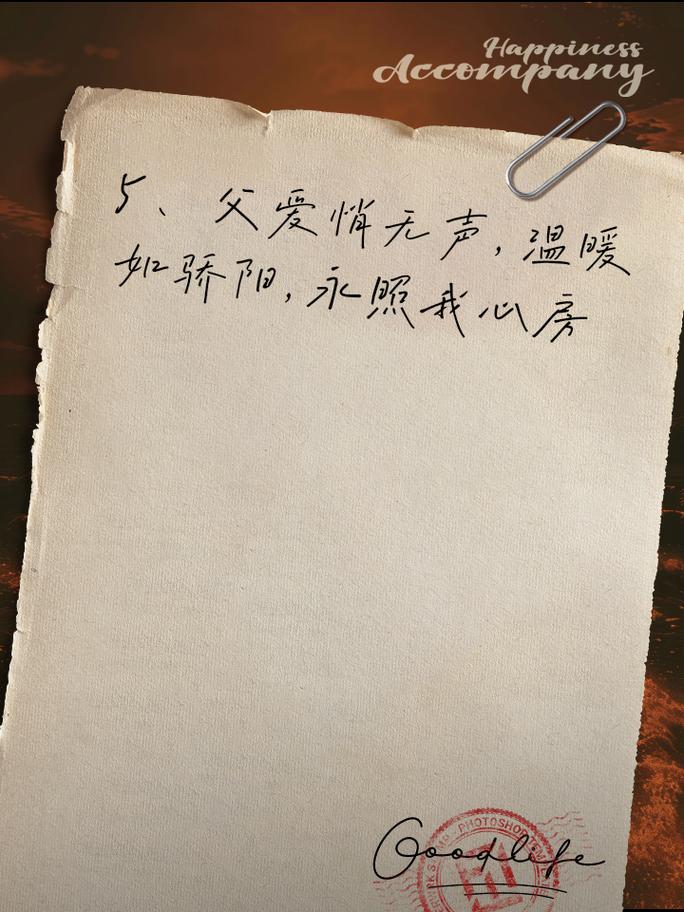 Happiness
Accompany
5、父爱悄无声,温暖
如骄阳,永照我心房
PHOTOSHOP
Goodlife